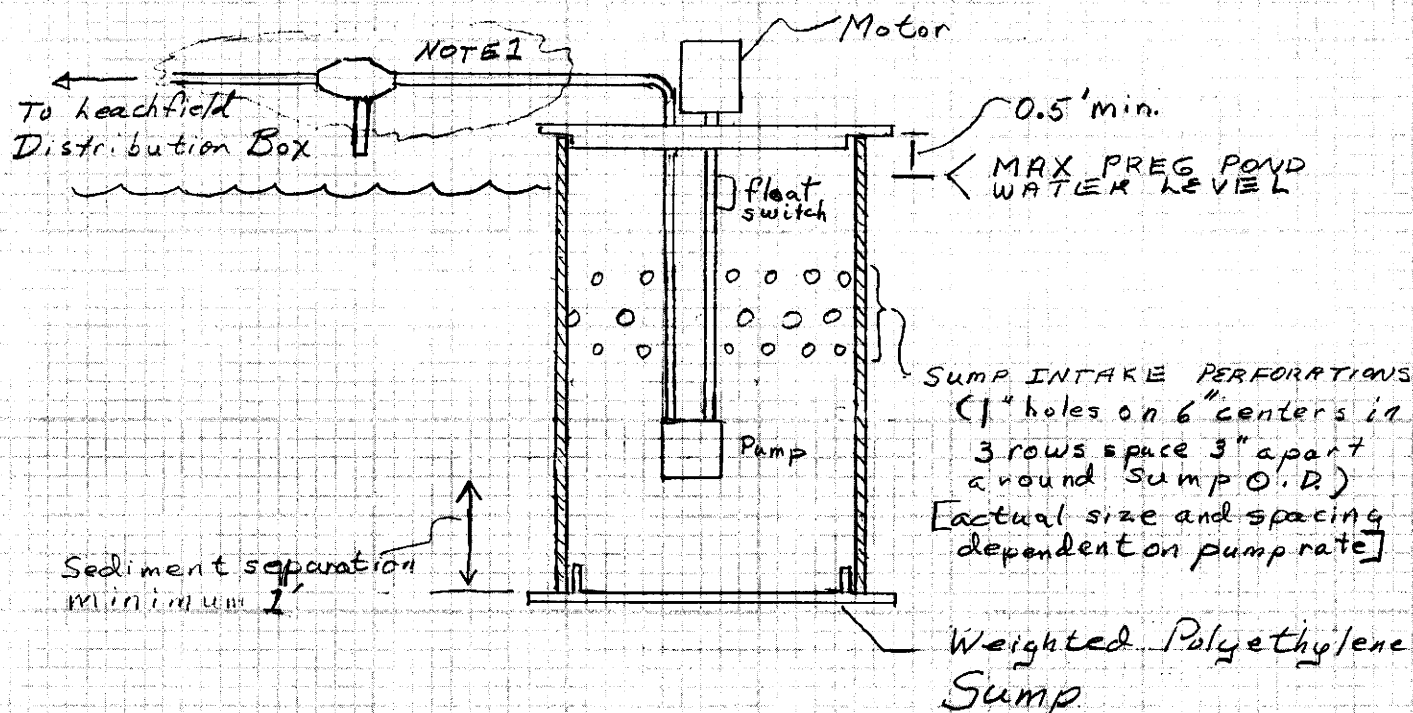 Motor
NOTE 1
To Leachfield
Distribution Box
0.5' min.
MAX PREG POND
WATER LEVEL
float
switch
SUMP INTAKE PERFORATIONS
(1" holes on 6" centers in
3 rows space 3" apart
around Sump O.D.)
[actual size and spacing
dependent on pump rate]
Pump
Sediment separation
minimum 1'
Weighted Polyethylene
Sump